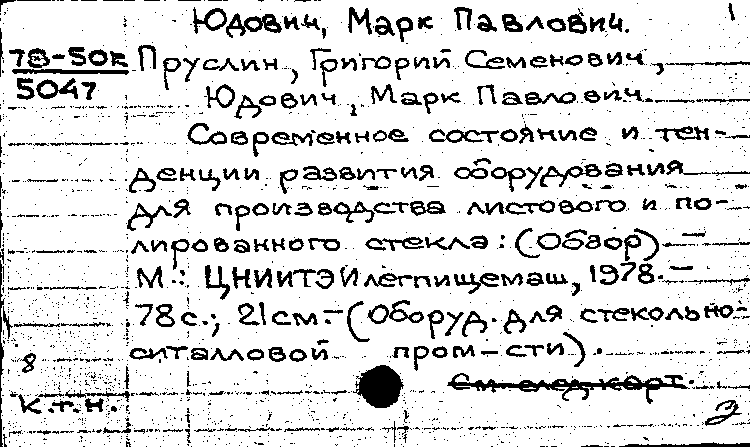 1
Юдович, Марк Павлович.
78-50к Пруслин, Григорий Семенович,
5047 Юдович, Марк Павлович.
Современное состояние и тен-
денции развития оборудования
для производства листового и по-
лированного стекла: (Обзор). —
М.: ЦНИИТЭИлегпищемаш, 1978. —
78 с.; 21 см. — (Оборуд. для стекольно-
8 ситалловой пром-сти).
См. след. карт.
к.т.н.